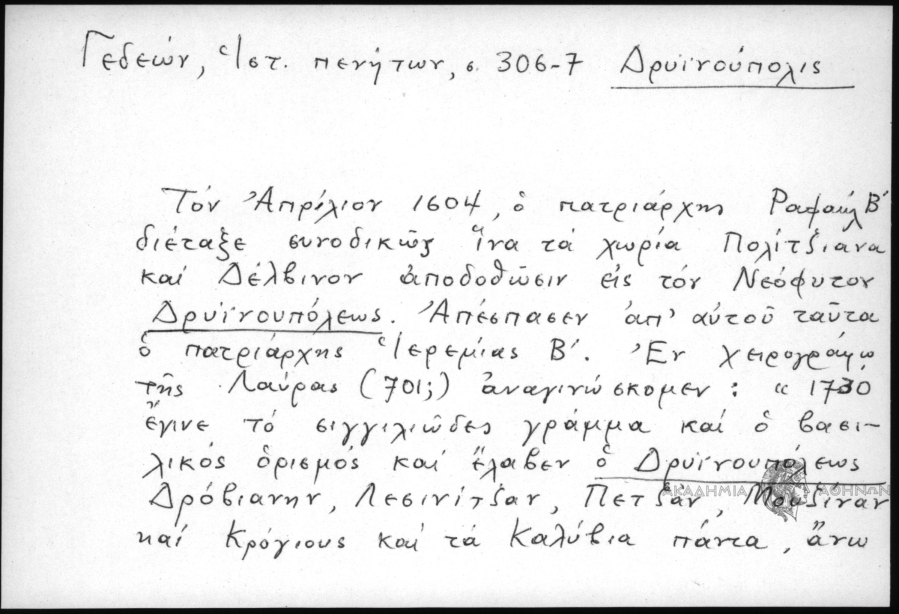 Γεδεών, Ἱστ. πενήτων, σ. 306-7 Δρυϊνούπολις
Τόν Ἀπρίλιον 1604, ὁ πατριάρχης Ραφαήλ Β΄
διέταξε συνοδικῶς ἵνα τά χωρία Πολίτζιανα
καί Δέλβινον ἀποδοθῶσιν εἰς τόν Νεόφυτον
Δρυϊνουπόλεως. Ἀπέσπασεν ἀπ' αὐτοῦ ταῦτα
ὁ πατριάρχης Ἱερεμίας Β΄. Ἐν χειρογράφῳ
τῆς Λαύρας (701;) ἀναγινώσκομεν: « 1730
ἔγινε τό σιγγιλιῶδες γράμμα καί ὁ βασι-
λικός ὁρισμός καί ἔλαβεν ὁ Δρυϊνουπόλεως
Δρόβιανην, Λεσινίτζαν, Πετζάν, Μουζίναν
καί Κρόγιους καί τά Καλύβια πάντα, ἄνω
ΑΚΑΔΗΜΙΑ ΑΘΗΝΩΝ